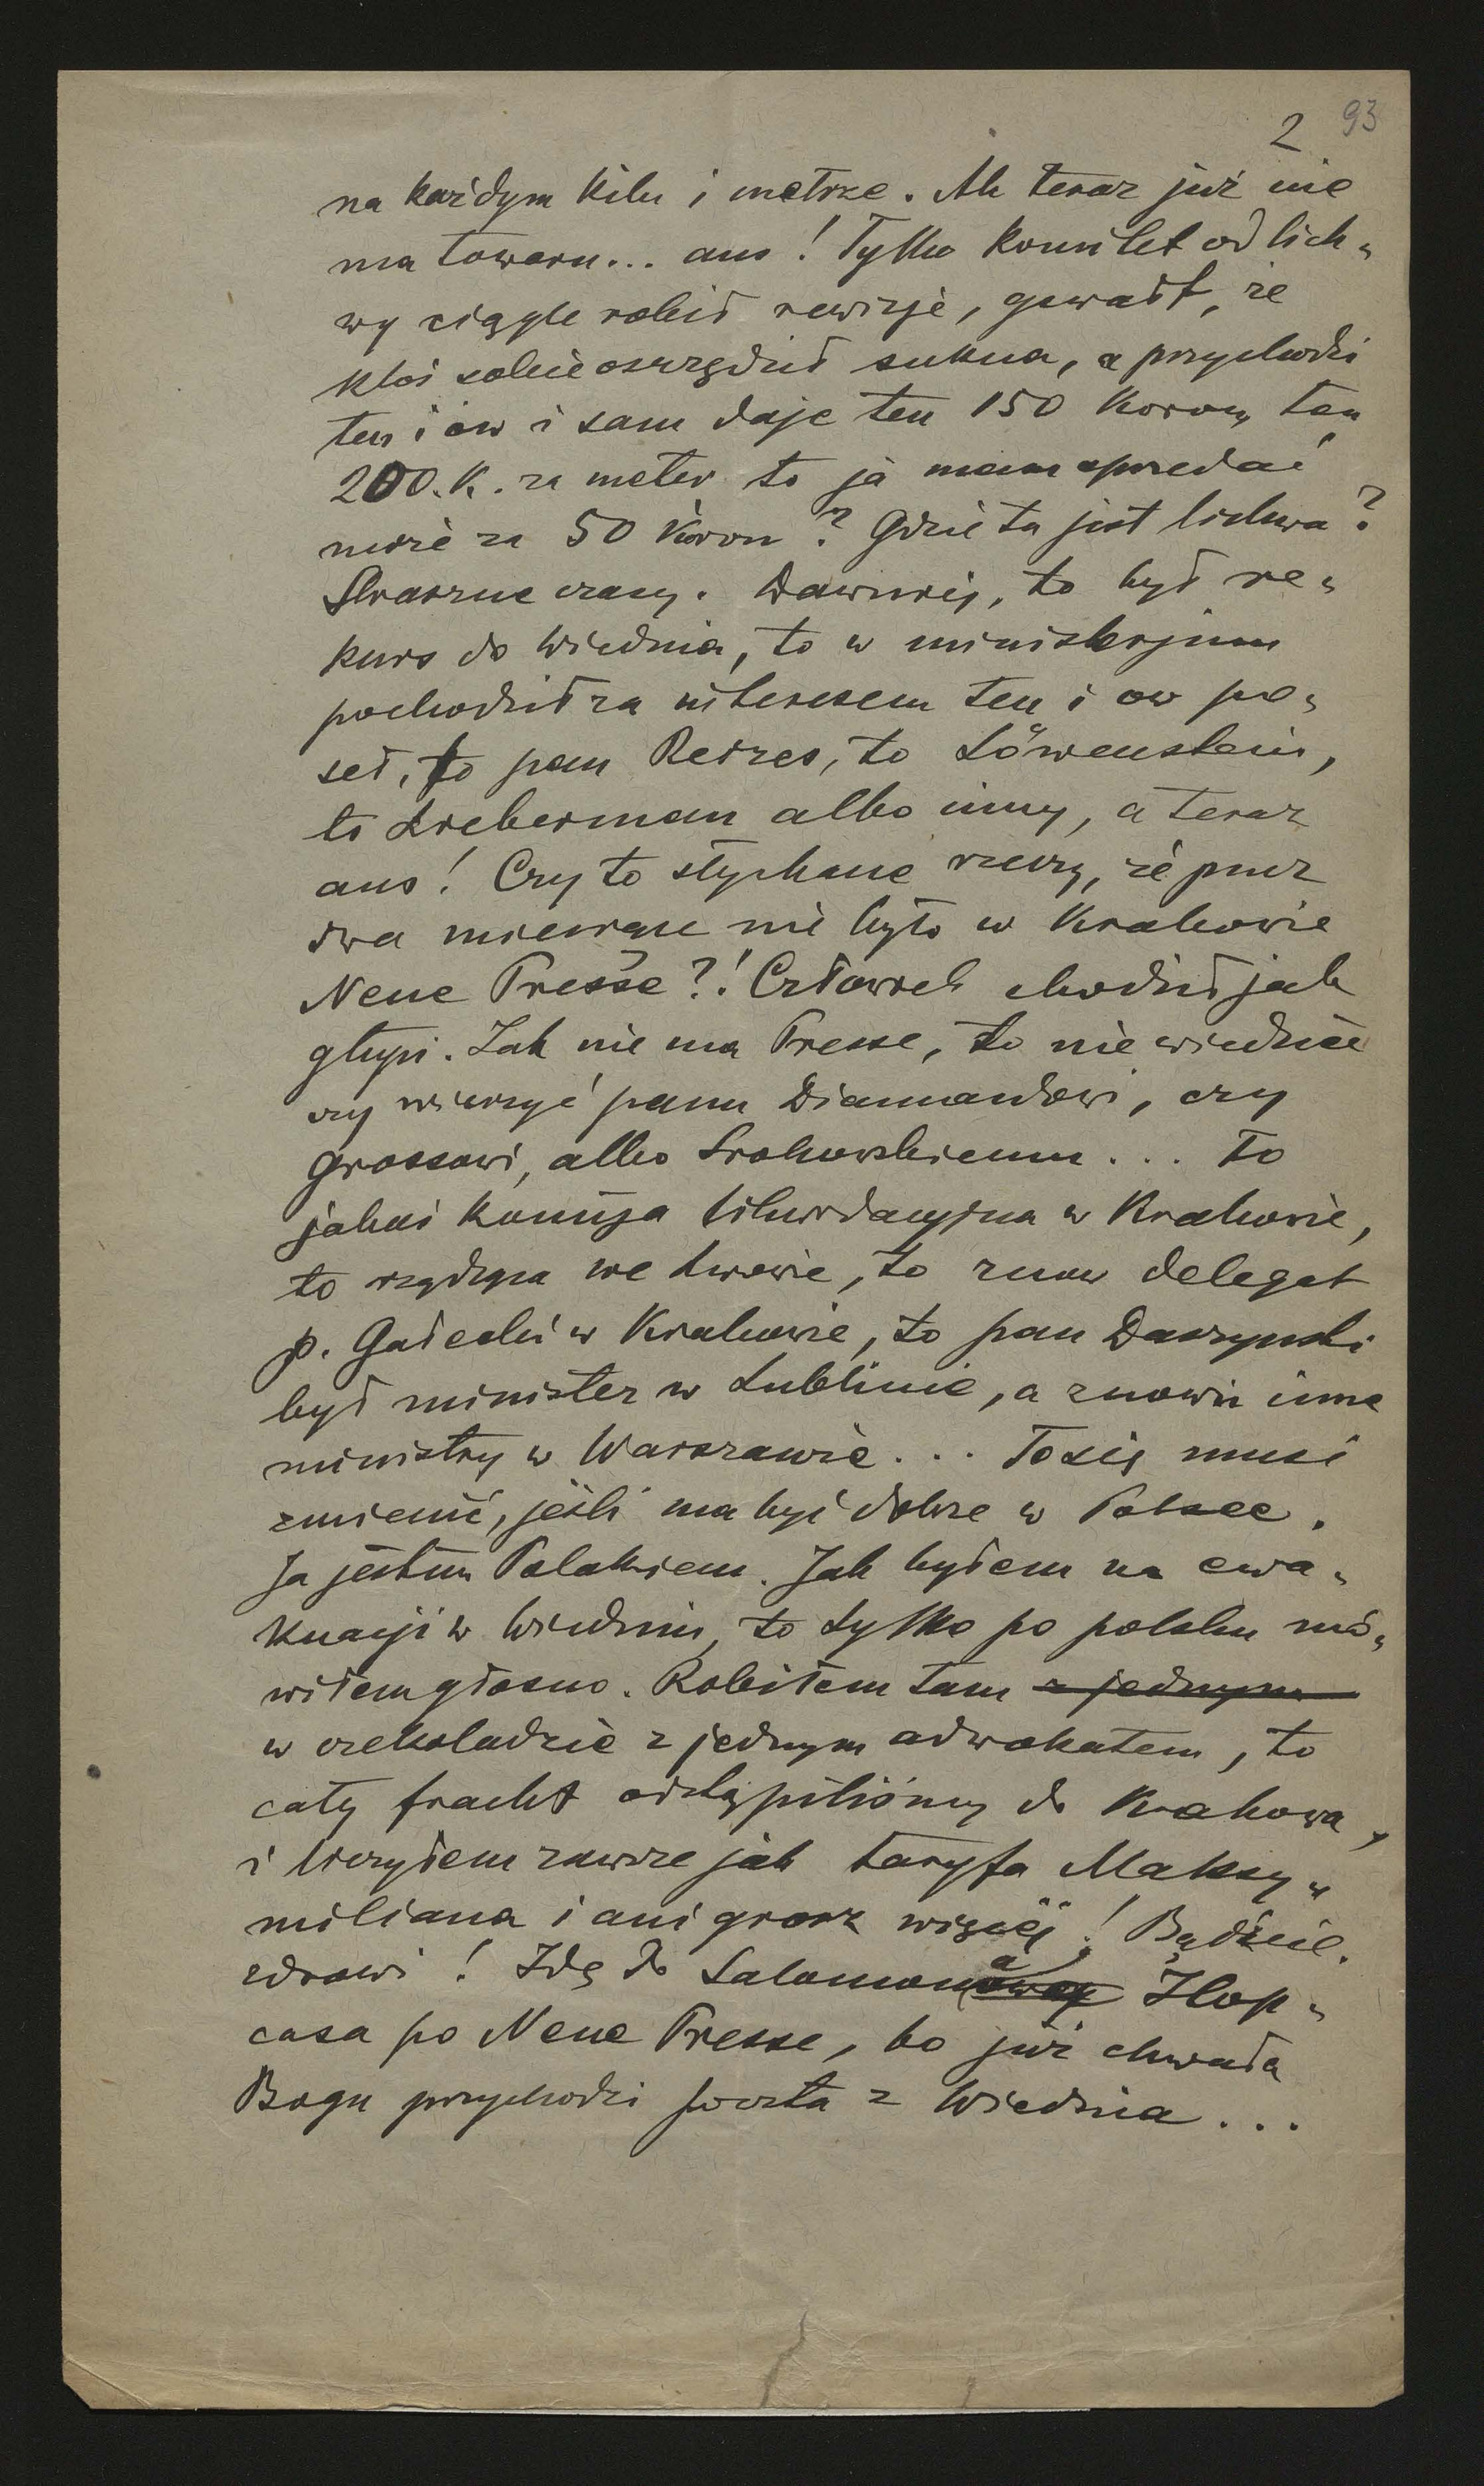 2 93
na każdym kilu i metrze. Ale teraz już nie
ma towaru... aus! Tylko komitet od lich-
wy ciągle robił rewizje, gewałt, że
ktoś sobie oszczędził sukna, a przychodzi
ten i ów i sam daje ten 150 koron, ten
200. K. za meter to ja mam sprzedać
może za 50 koron? Gdzie tu jest lichwa?
Straszne czasy. Dawniej, to był re-
kurs do Wiednia, to w ministerjum
pochodził za interesem ten i ów po-
seł, to pan Reizes, to Löwenstein,
to Lieberman albo inny, a teraz
aus! Czy to słychane rzeczy, że przez
dwa miesiące nie było w Krakowie
Neue Presse?! Człowiek chodził jak
głupi. Jak nie ma Presse, to nie wiedzieć
czy wierzyć panu Diamandowi, czy
Grossowi, albo Srokowskiemu... To
jakaś komisja likwidacyjna w Krakowie,
to rządząca we Lwowie, to znów delegat
p. Gałecki w Krakowie, to pan Daszyński
był minister w Lublinie, a znowu inne
ministry w Warszawie... To się musi
zmienić, jeśli ma być dobrze w Polsce.
Ja jestem Polakiem. Jak byłem na ewa-
kuacji w Wiedniu, to tylko po polsku mó-
wiłem głośno. Robiłem tam z jednym
w czekoladzie z jednym adwokatem, to
cały fracht odstąpiliśmy do Krakowa,
i liczyłem zawsze jak taryfa Maksy-
miliana i ani grosz więcej! Bądźcie
zdrowi! Idę do Salomona Hop-
casa po Neue Presse, bo już chwała
Bogu przychodzi poczta z Wiednia...